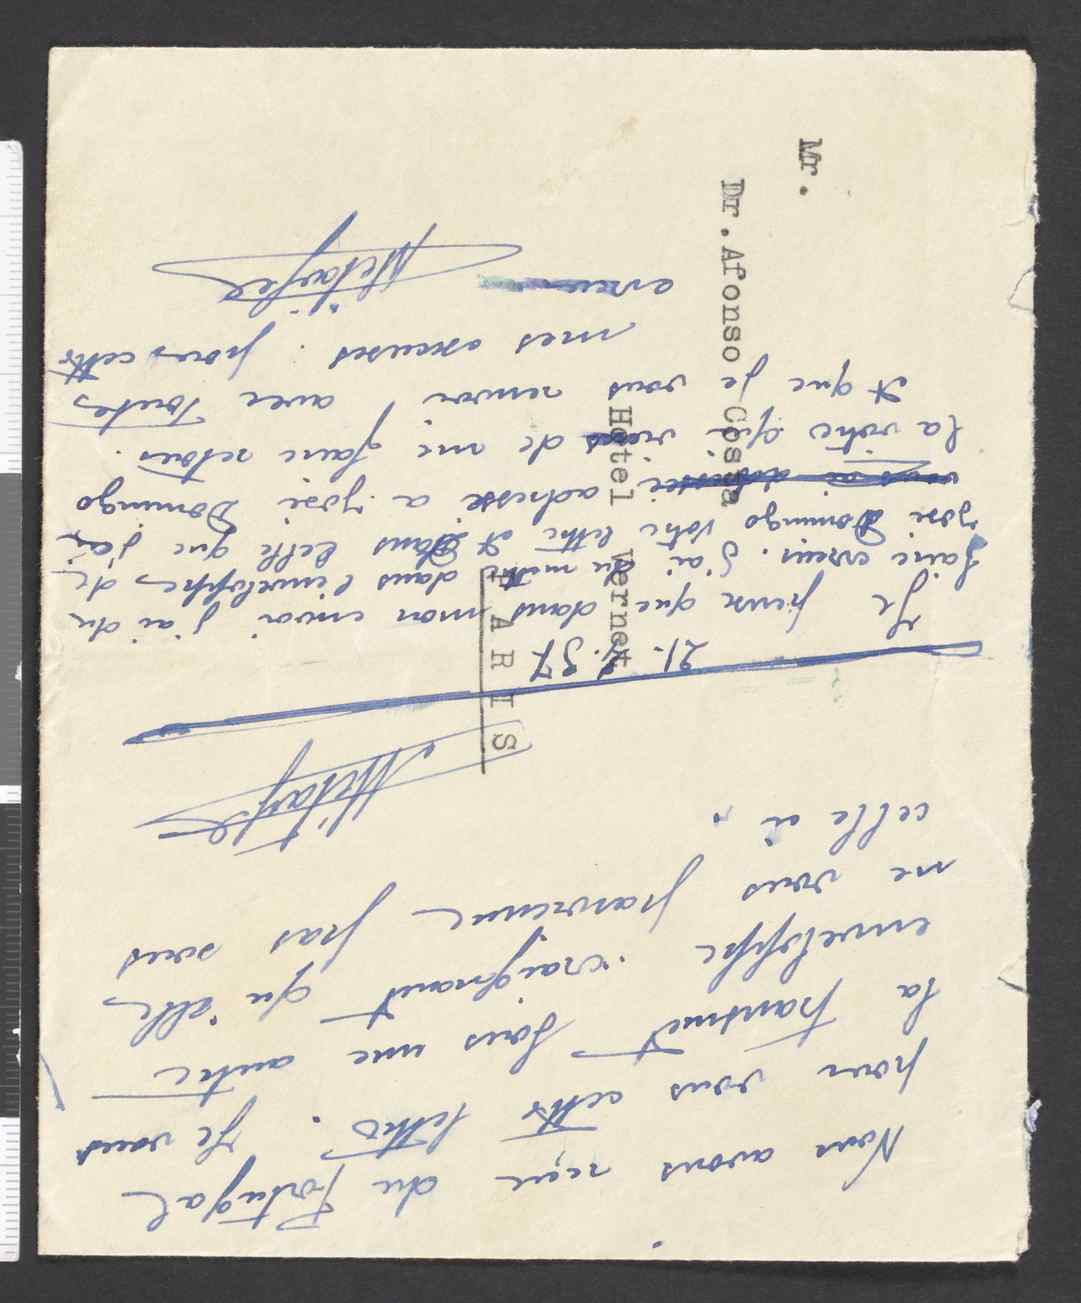 Mr.
Dr. Afonso Costa
Hotel Vernet
PARIS
Nous avons reçu du Portugal
pour vous cette lettre. Je vous
la transmet sous une autre
enveloppe craignant qu'elle
ne vous parvienne pas sous
celle ci.
21. .37
Je pense que dans mon envoi j'ai du
faire erreur. J'ai du mettre dans l'enveloppe de
José Domingo votre lettre et dans celle que j'ai
adressé a José Domingo
la votre qui viens de me faire retour.
et que je vous renvoi avec Toutes
mes excuses pour cette
erreur